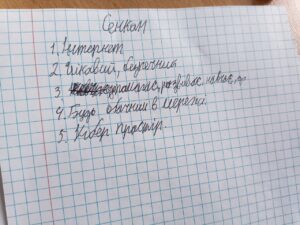 Сенкан
1. Інтернет
2. Цікавий, безпечний
3. розвиває, навчає,
4. Будь обачним в мережі.
5. Кібер простір.